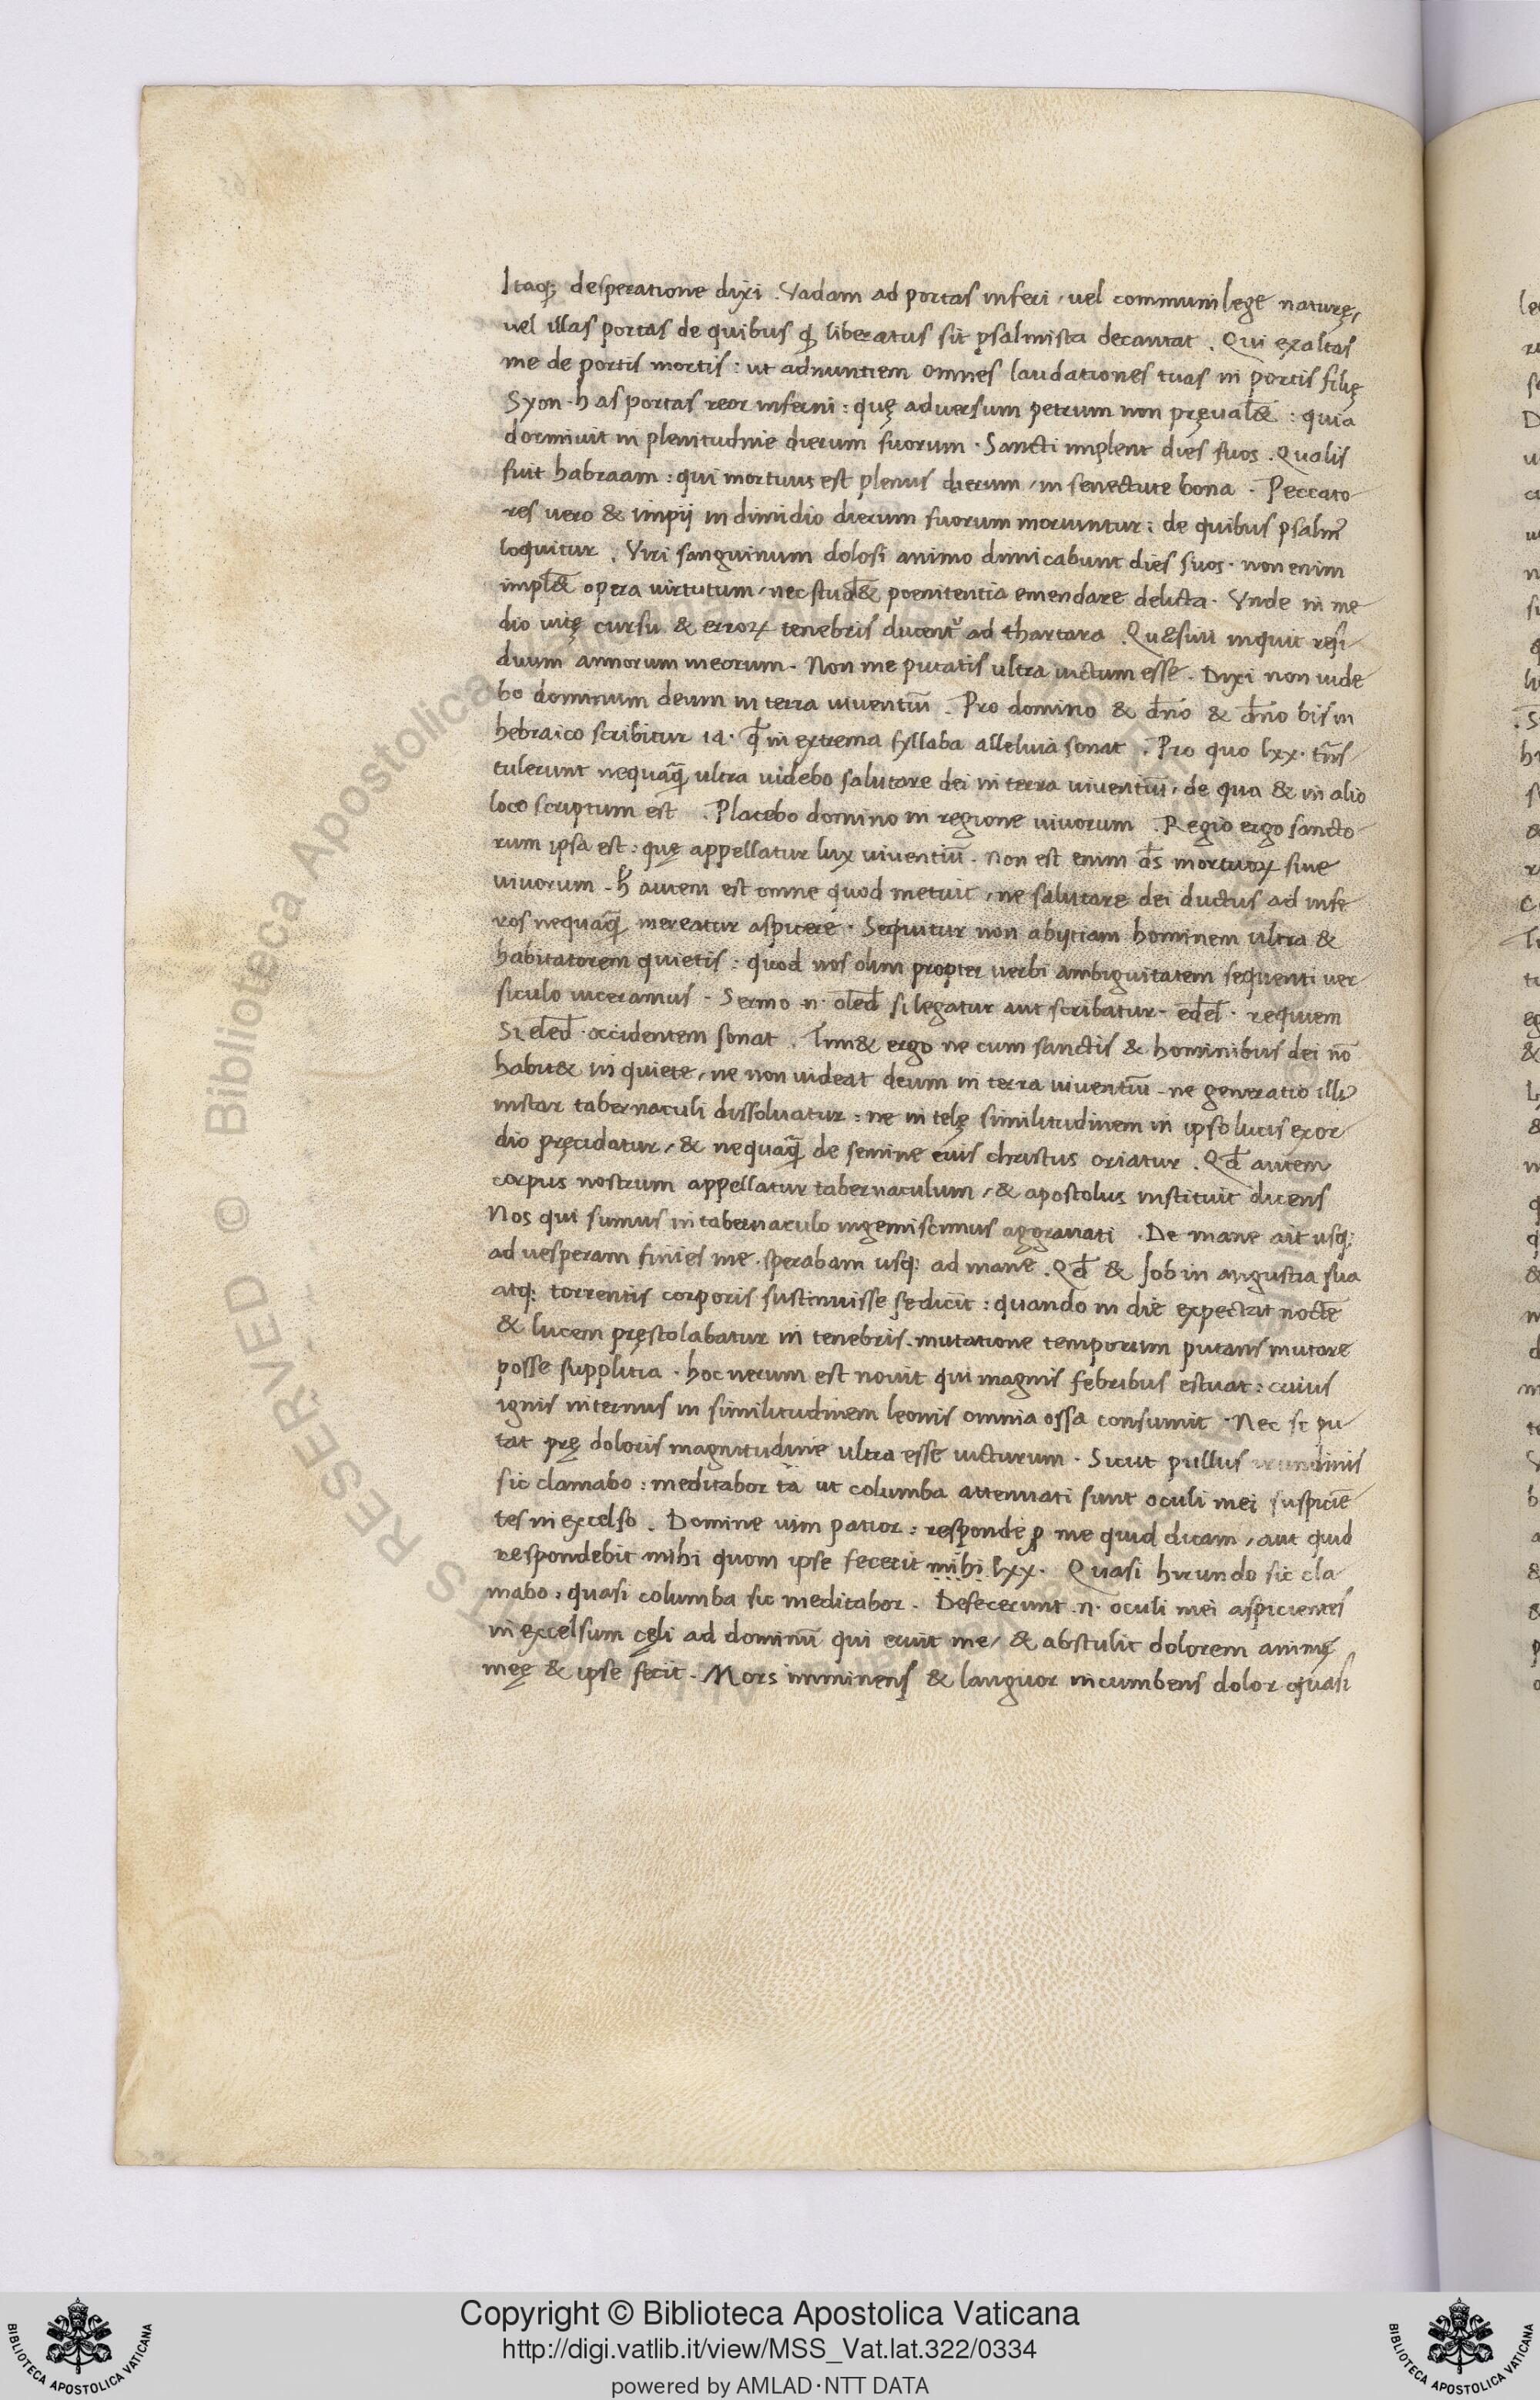 Itaq; desperatione dixi . Vadam ad portas inferi / uel communi lege naturę,
uel illas portas de quibus ꝙ liberatus sit psalmista decantat . Qui exaltas
me de portis mortis : ut adnuntiem omnes laudationes tuas in portis filię
Syon · has portas reor inferni : quę aduersum petrum non pręual& : quia
dormiuit in plenitudine dierum suorum · Sancti implent dies suos . Qualis
fuit habraam : qui mortuus est plenus dierum / in senectute bona · Peccato-
res uero & impij in dimidio dierum suorum moriuntur : de quibus psalm̄
loquitur . Viri sanguinum dolosi animo dimicabunt dies suos · non enim
impl& opera uirtutum / nec stud& poenitentia emendare delicta · Vnde in me-
dio uitę cursu & erroꝝ tenebris ducent᷑ ad thartara . Qu&siui inquit resi-
duum annorum meorum · Non me putatis ultra uictum esse . Dixi non uide
bo dominum deum in terra uiuentiū . Pro domino & dn̄o & dn̄o bis in
hebraico scribitur ia · qđ in extrema syllaba alleluia sonat . Pro quo lxx · trn̄s-
tulerunt nequaꝙ̄ ultra uidebo salutare dei in terra uiuentiū / de qua & in alio
loco scriptum est . Placebo domino in regione uiuorum . Regio ergo sancto-
rum ipsa est : quę appellatur lux uiuentiū . Non est enim ds̄ mortuoꝝ siue
uiuorum . h̄ autem est omne quod metuit / ne salutare dei ductus ad infe-
ros nequaꝙ̄ mereatur aspicere · Sequitur non abijciam hominem ultra &
habitatorem quietis : quod nos olim propter uerbi ambiguitatem sequenti uer
siculo iuceramus · Sermo n · oled̄ si legatur aut scribatur · edel̄ · requiem
Si eled̄ · occidentem sonat . Tim& ergo ne cum sanctis & hominibus dei nō
habit& in quiete / ne non uideat deum in terra uiuentiū - ne generatio illi᷒
instar tabernaculi dissoluatur : ne in telę similitudinem in ipso lucis exor-
dio pręcidatur / & nequaꝙ̄ de semine euis christus oriatur . Qđ autem
corpus nostrum appellatur tabernaculum / & apostolus instituit dicens
Nos qui sumus in tabernaculo ingemiscimus aggrauati . De mane ait usq;
ad uesperam finies me . sperabam usq; ad mane . Qđ & Job in angustia sua
atq; torrentis corporis sustinuisse se dicit : quando in die expectat noctē
& lucem pręstolabatur in tenebris . mutatione temporum putans mutare
posse supplitia · hoc uerum est nouit qui magnis febribus estuat : cuius
ignis internus in similitudinem leonis omnia ossa consumit · Nec se pu-
tat prę doloris magnitudine ultra esse uicturum · Sicut pullus irundinis
sic clamabo : meditabor ta ut columba attenuati sunt oculi mei suspiciē
tes in excelso . Domine uim patior : responde ꝓ me quid dicam / aut quid
respondebit mihi quom ipse fecerit mihi lxx · Quasi hirundo sic cla-
mabo : quasi columba sic meditabor . Defecerunt n · oculi mei aspicientes
in excelsum cęli ad dominū qui eruit me / & abstulit dolorem animę
meę & ipse fecit . Mors imminens & languor incumbens dolor quasi
Copyright © Biblioteca Apostolica Vaticana
http://digi.vatlib.it/view/MSS_Vat.lat.322/0334
powered by AMLAD·NTT DATA